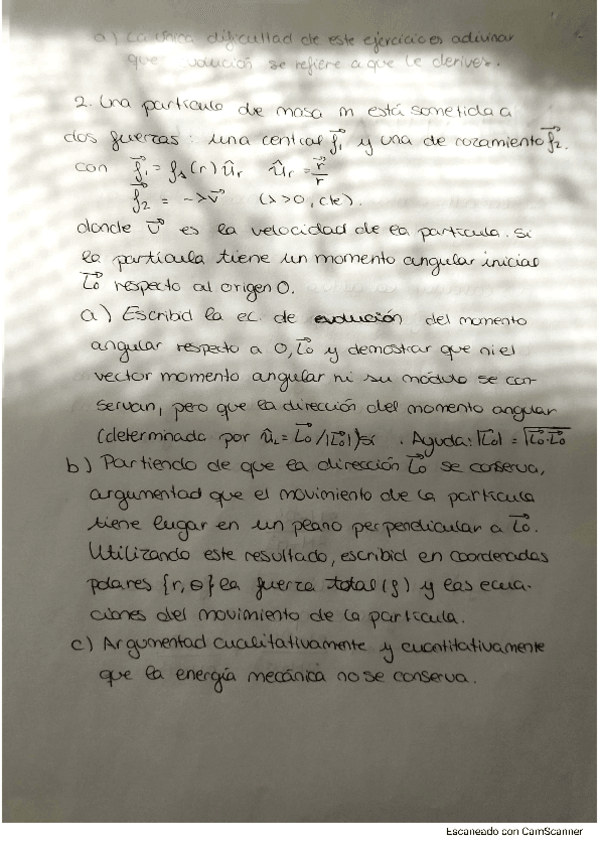 a) La única dificultad de este ejercicio es adivinar
que evolución se refiere a que le derives.
2. Una particula de masa m está sometida a
dos fuerzas: una central f⃗₁ y una de rozamiento f⃗₂.
con f⃗₁ = f₁(r) ûr ûr = r⃗/r
f⃗₂ = -λv⃗ (λ>0, cte).
donde v⃗ es la velocidad de la particula. Si
la partícula tiene un momento angular inicial
L⃗o respecto al origen O.
a) Escribid la ec. de evolución del momento
angular respecto a O, L⃗o y demostrar que ni el
vector momento angular ni su módulo se con-
servan, pero que la dirección del momento angular
(determinada por ûL = L⃗o/|L⃗o|) sí. Ayuda: |L⃗o| = √L⃗o·L⃗o
b) Partiendo de que la dirección L⃗o se conserva,
argumentad que el movimiento de la particula
tiene lugar en un plano perpendicular a L⃗o.
Utilizando este resultado, escribid en coordenadas
polares {r, θ} la fuerza total (f) y las ecua-
ciones del movimiento de la partícula.
c) Argumentad cualitativamente y cuantitativamente
que la energía mecánica no se conserva.
Escaneado con CamScanner